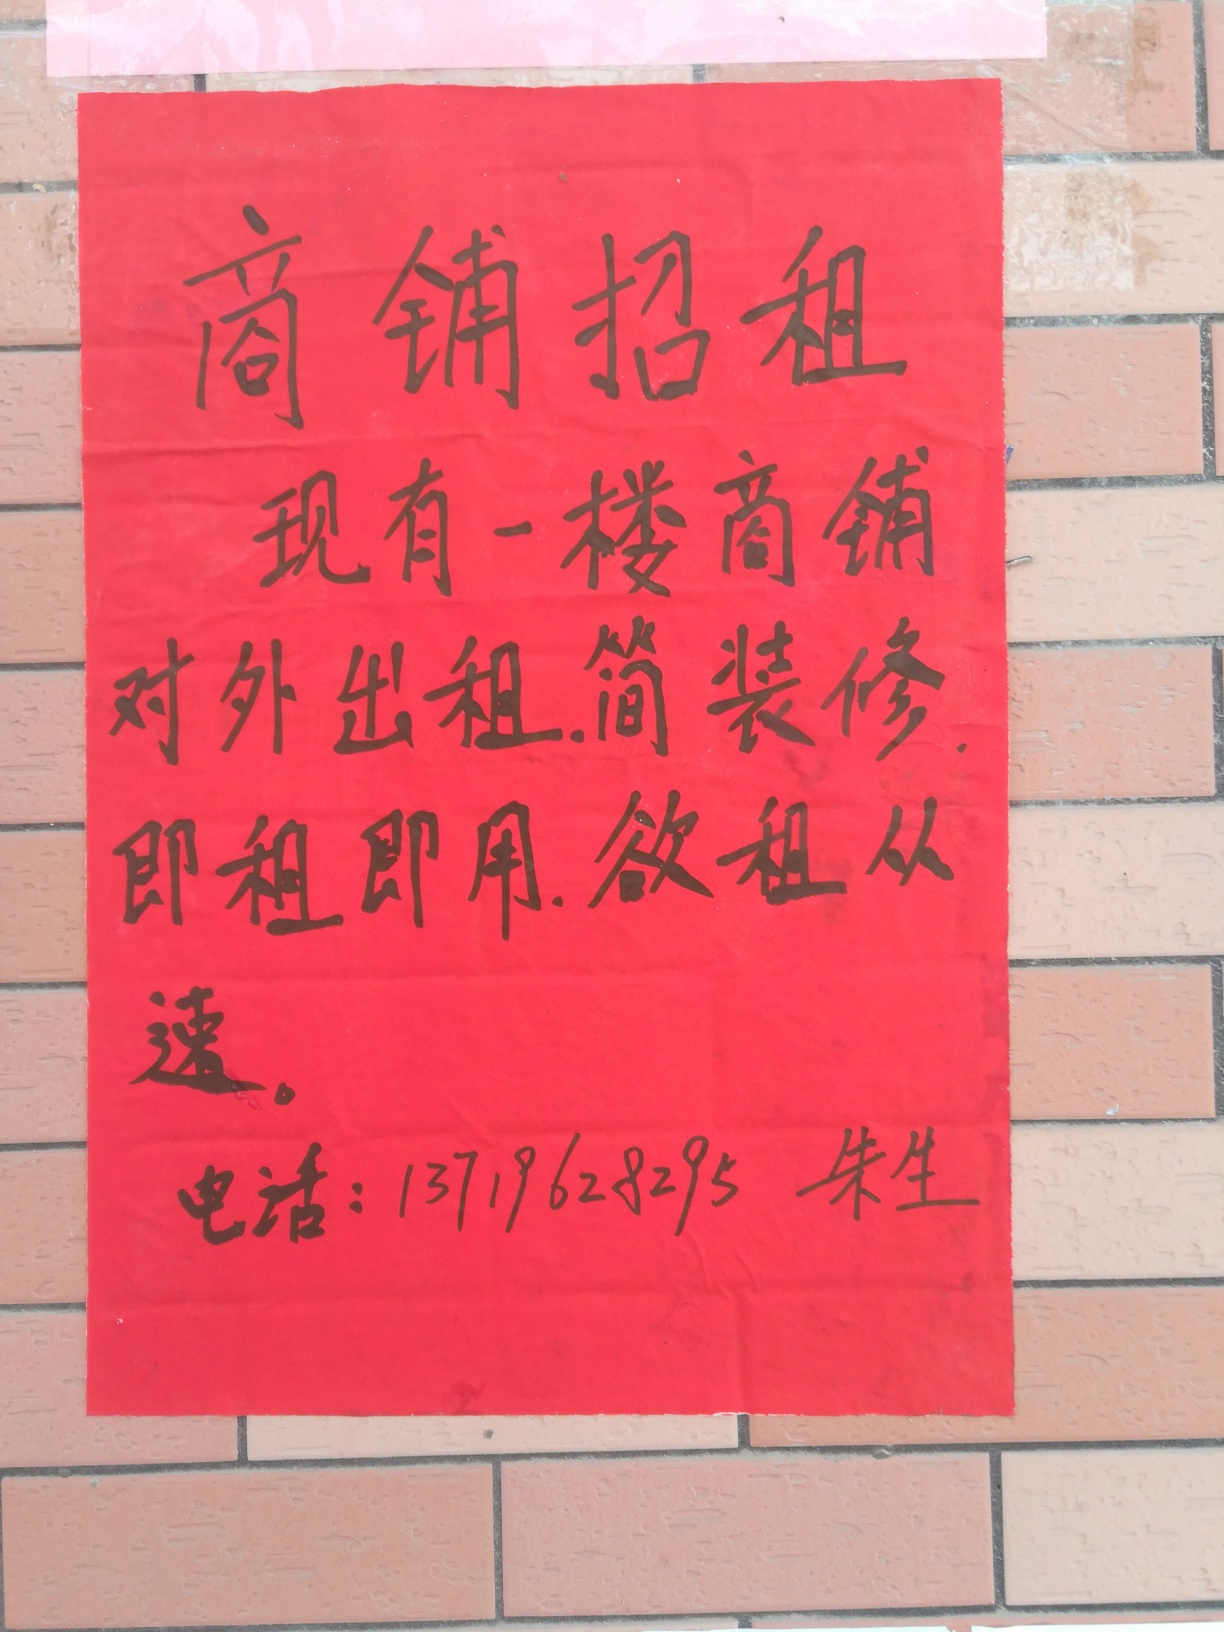 商铺招租
现有一楼商铺
对外出租.简装修.
即租即用.欲租从
速。
电话：13719628295 朱生